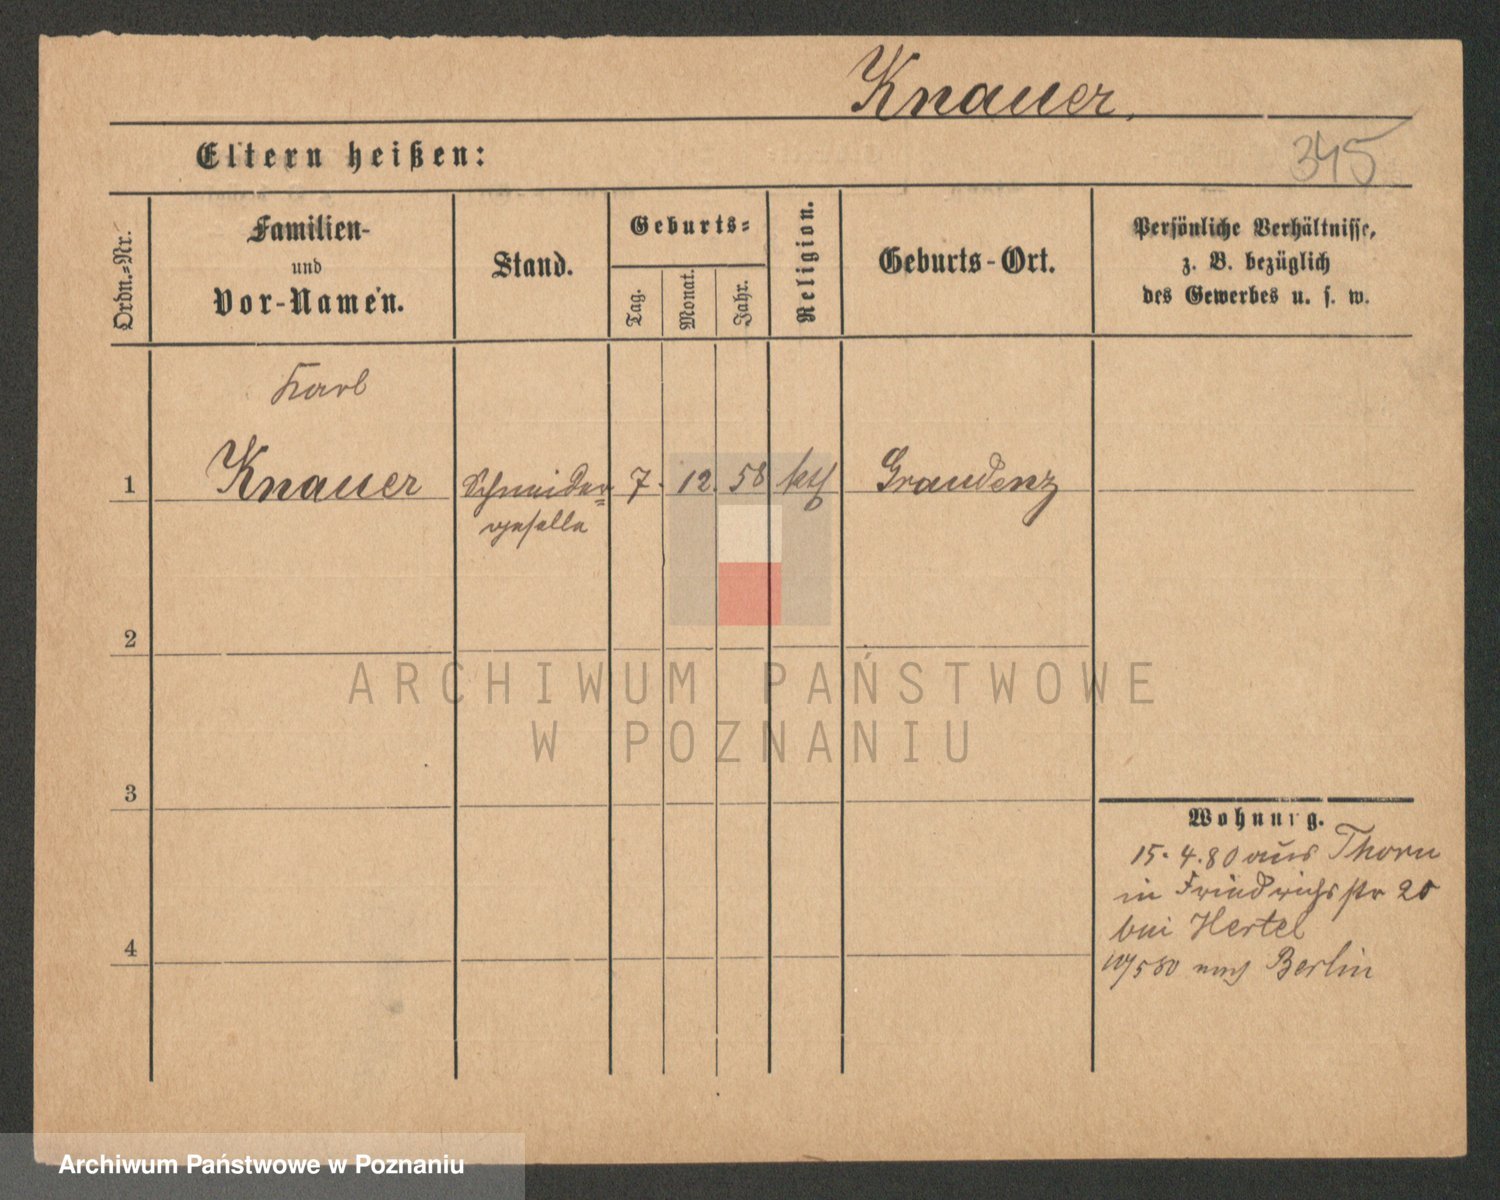 Knauer.
Eltern heißen:
345
Ordn.-Nr.
Familien-
und
Vor-Namen.
Stand.
Geburts-
Tag.
Monat.
Jahr.
Religion.
Geburts-Ort.
Persönliche Verhältnisse,
z. B. bezüglich
des Gewerbes u. s. w.
Karl
1 Knauer Schneider= 7. 12. 58 kath Graudenz
geselle
2
ARCHIWUM PAŃSTWOWE
W POZNANIU
3
Wohnung.
15. 4. 80 aus Thorn
in Friedrichstr 20
bei Hertel
5 80 nach Berlin
4
Archiwum Państwowe w Poznaniu